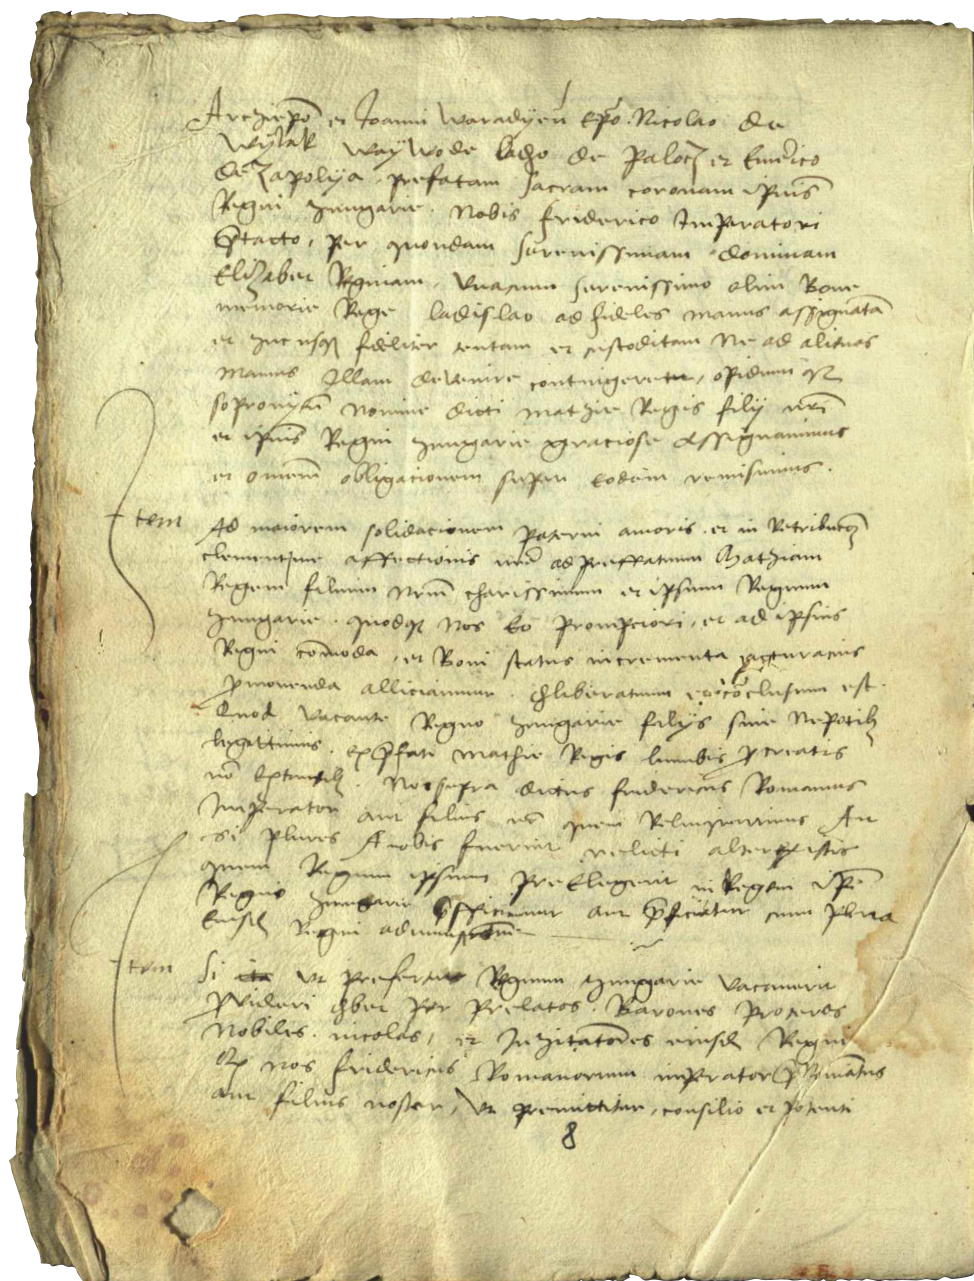 Archiepo et Joanni Waradyen Epo. Nicolao de
Wylak Waywode ladzo de Palocz et Emerico
de Zapolya, prefatam sacram coronam ipius
Regni Hungarie. Nobis friderico Imperatori
per quondam serenissimam dominam
Elizabet Reginam, vnacum serenissimo olim Bone
memorie Rege ladislao ad fideles manus assignata
et hucusq fideliter tentam et custoditam Ne ad alienas
manus Illam devenire contingeret, opidum qz
sopronien Nomine dicti mathie Regis filij nri
et ipius Regni Hungarie graciose assignauimus
et omnem obligacionem super eodem remisimus.
Item Ad maiorem solidacionem paterni amoris et in Retribucoz
clementissime affectionis nre ad preffatum Mathiam
Regem filium nrm charissimum et ipsum Regnum
Hungarie. quodqz Nos eo prompciori, et ad ipsius
Regni comoda, et Boni status incrementa
pmouenda alliciamur. dliberatum conclusum est.
Quod vacante Regno Hungarie filijs siue Nepotibz
legittimis. ex pfati Mathie Regis lumbis pcreatis
no extantibz. Nos supra dictus fridericus Romanus
Imperator aut filius nr quem Relinquerimus Aut
si plures A nobis fuerint relicti alter ex istis
quem Regnum ipsum PreElegerit in Regem ipe
Regno Hungarie pfficiatur cum plena
Eiusd Regni administracione
Item Si vt prefertur Regnum Hungarie vacauerit
pvideri dbet per prelatos. Barones Proceres
Nobiles. incolas, et Inhitatores eiusd Regni
nos fridericus Romanorum imperator
aut filius noster, vt premittitur, consilio et potenti
8